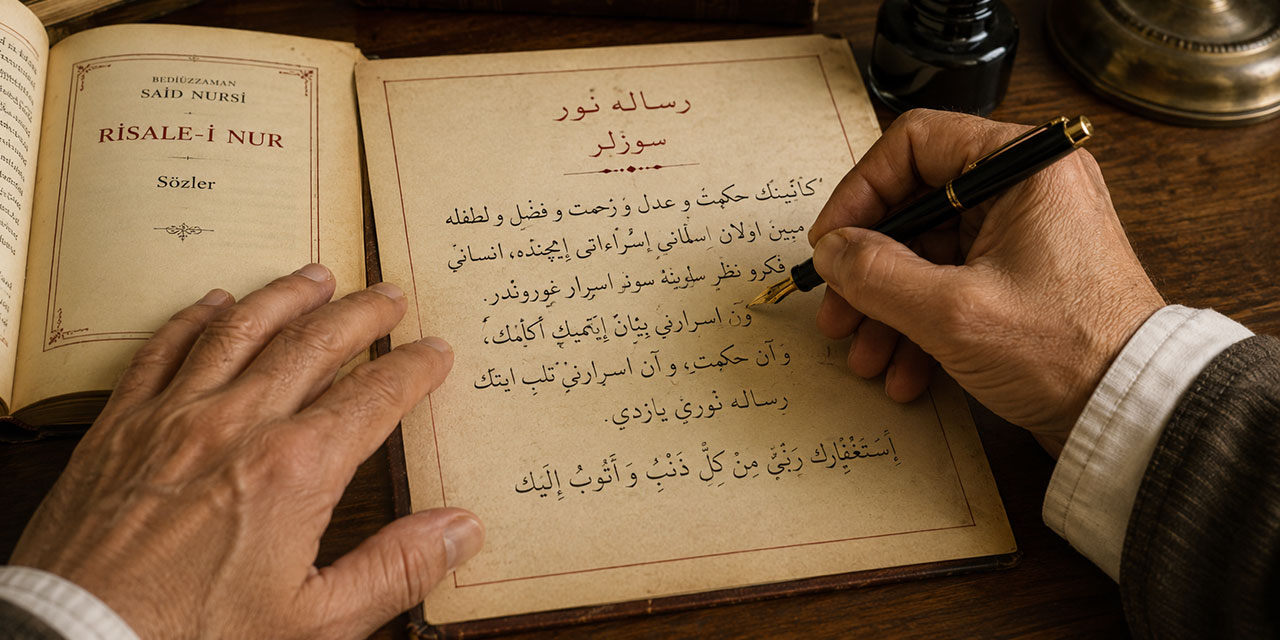 BEDİÜZZAMAN
SAİD NURSİ
RİSALE-İ NUR
Sözler
رساله نور
سوزلر
كائنينك حكمت و عدل و رحمت و فضل و لطفله
مبين اولان إسراءاتى إيچنده، انسانی
فكرو نظر سونر اسرار غوروندر.
ون اسرارني بيان إيتميك
و آن حكمت، و آن اسرارني تلب ايتك
رساله نوري يازدي.
إستغفارك ربي من كل ذنب و أتوب إليك